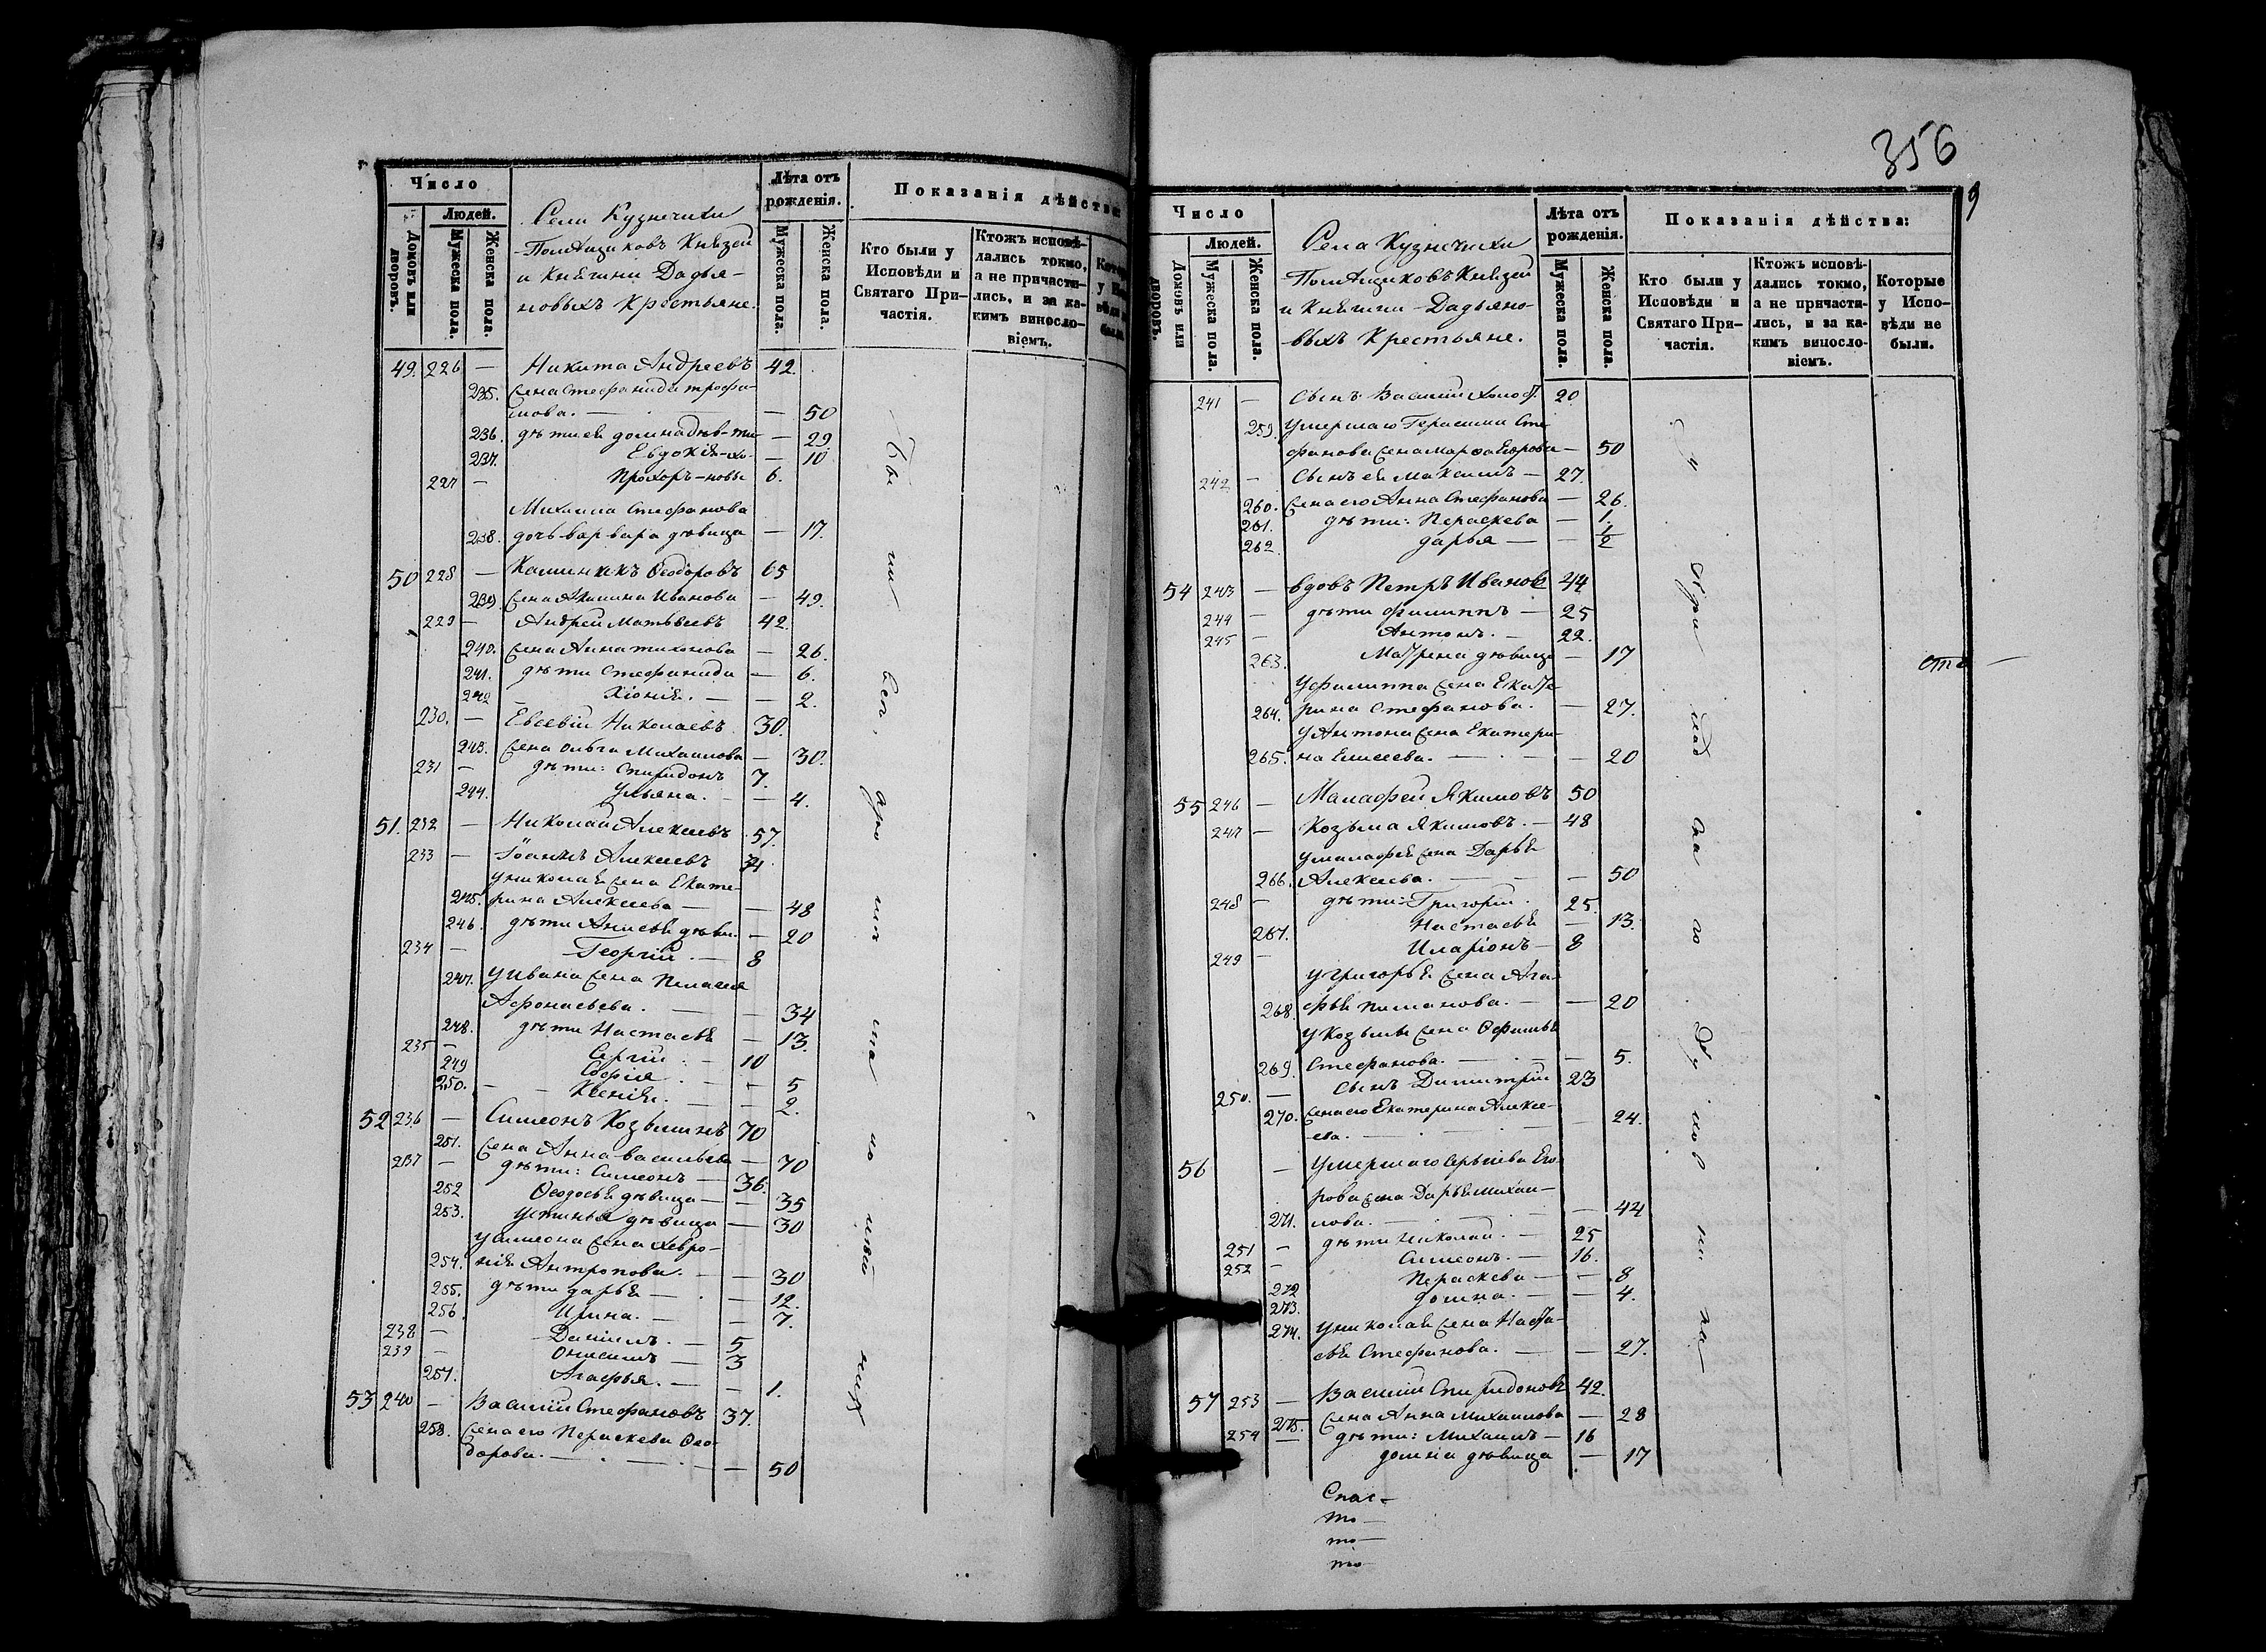 Число
Людей.
Домовъ или дворовъ.
Мужеска пола.
Женска пола.
Села Кузнечихи
Помѣщиковъ Князей
и Княгини Дадья-
новыхъ Крестьяне.
Лѣта отъ рожденія.
Мужеска пола.
Женска пола.
Показанія дѣйства:
Кто были у Исповѣди и Святаго При-частія.
Ктожъ исповѣ-дались токмо, а не причасти-лись, и за ка-кимъ винословіемъ.
49. 226 — Никита Андреевъ 42.
235. жена Стефанида трофи-
мова. — — 50
236. дѣти ея домна — 29.
237. Евдокія — 10
227 — Прохоръ 6.
Михаила Стефанова
238. дочь варвара дѣвица — 17.
50 228 — Ѳеодоровъ 65
239. жена Акилина Иванова — 49.
229 — Андрей Матвѣевъ 42.
240. жена Анна тихонова — 26.
241. дѣти Стефанида — 6.
242 Хіонія. — — 2.
230. — Евсевій Николаевъ 30.
243. жена Ольга Михаилова — 30.
231 — дѣти: Спиридонъ 7.
244. Ульяна. — — 4.
51. 232 — Николай Алексеевъ 57.
233 — Іоаннъ Алексеевъ 34
у николая жена Екате-
245. рина Алексеева — — 48
246. дѣти Анисья дѣви. — 20
234 — Георгій. — 8
247. у Ивана жена Пелагея
Афонасьева. — — 34
248. дѣти Настасья — 13.
235 — Сергій. — 10
249 Софія. — — 5
250. — — Ксенія. — — 2.
52 236 — Симеонъ Козьминъ 70
251. жена Анна васильева — 70
237 — дѣти: Симеонъ — 36.
252 Ѳеодосья дѣвица — 35
253. Устинья дѣвица — 30
у симеона жена хевро-
254. нія Антропова. — — 30
255. дѣти дарья — . — 12.
256. Ирина. — — 7.
238 — Даніилъ. — 5
239 — Онисимъ — 3
257. Агафья. — — 1.
53 240 — Василій Стефановъ 37.
258. жена его Параскева Ѳео-
дорова. — . — . — 50
356
9
Число
Людей.
Домовъ или дворовъ.
Мужеска пола.
Женска пола.
Села Кузнечихи
Помѣщиковъ Князей
и Княгини Дадьяно-
выхъ Крестьяне.
Лѣта отъ рожденія.
Мужеска пола.
Женска пола.
Показанія дѣйства:
Кто были у Исповѣди и Святаго При-частія.
Ктожъ исповѣ-дались токмо, а не причасти-лись, и за ка-кимъ винословіемъ.
Которые у Испо-вѣди не были.
241 — Сынъ Василій холос. 20
умершаго Герасима Сте-
259. фанова жена Марфа Егорова — 50
242 — Сынъ ея Максимъ — 27.
260. жена его Анна Стефанова — 26.
261. дѣти: Параскева — 1.
262 дарья — — 1/2
54 243 — вдовъ Петръ Иванов 44
244 — дѣти филиппъ — 25
245 — Антонъ. — 22.
263. Матрена дѣвица — 17
у филиппа жена Екате-
264. рина Стефанова. — 27.
у Антона жена Екатери-
265. на Елисеева. — . — — 20
55 246 — Малафей Якимовъ 50
247 — Козьма Якимовъ. — 48
у малафея жена Дарья
266. Алексеева. — — — 50
248 — дѣти: Григорій. 25.
267. Настасья — 13.
249 — Иларіонъ — 8
у григорья жена Ага-
268. фья пиманова. — — 20
у Козьмы жена
269. Стефанова. — . — — 5.
250. — Сынъ Димитрій 23
270. жена его Екатерина Алексе-
ева. — . — . — — 24.
56 — Умершаго Его-
рова жена Дарья михаи-
271. лова. — . — . — — 44
251 — дѣти Николай. — 25
252 — Симеонъ. — 16.
272 Параскева — — 8
273. домна. — — 4.
274. у николая жена Наста-
сья Стефанова. — — 27.
57 253 — Василій Спиридоновъ 42.
275. жена Анна Михаилова — 28
254 — дѣти: Михаилъ — 16
домна дѣвица — 17